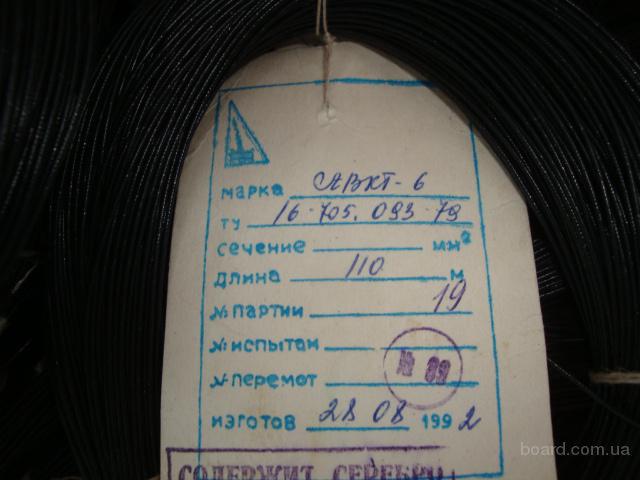 марка АВКТ-6
ту 16-705.093-79
сечение мм²
длина 110 м
№ партии 19
№ испытан
№ перемот
изготов 28 08 1992
СОДЕРЖИТ СЕРЕБРО
board.com.ua